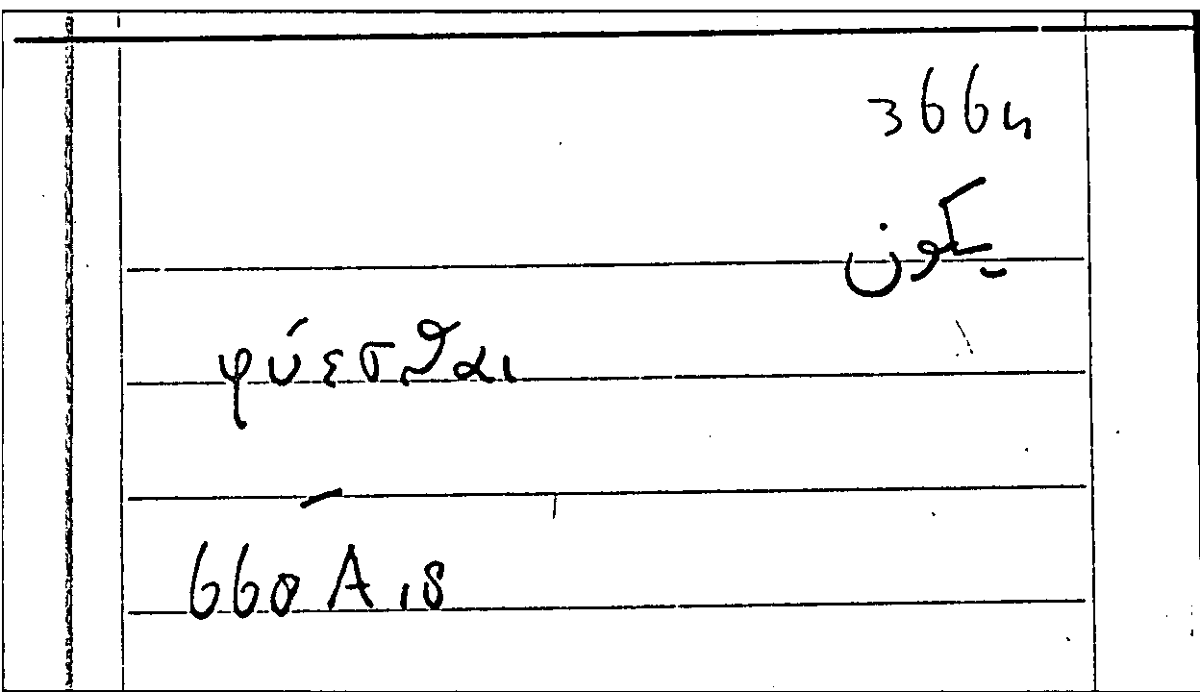 3664
يكون
φύεσθαι
660 A 18